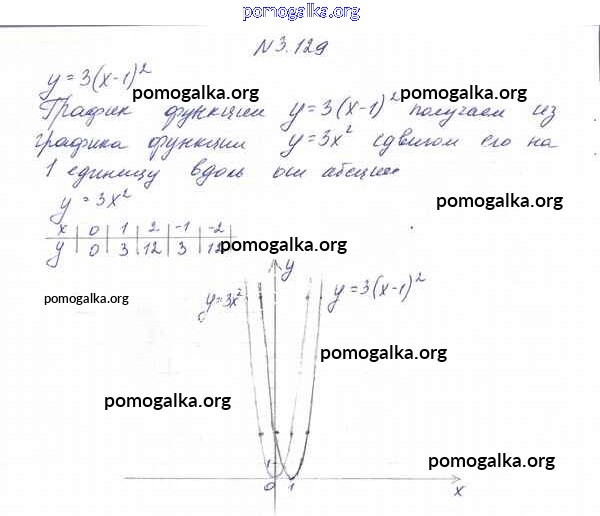 pomogalka.org
N 3.129
y = 3(x-1)²
pomogalka.org pomogalka.org
График функции y = 3(x-1)² получаем из
графика функции y = 3x² сдвигом его на
1 единицу вдоль оси абсцисс
y = 3x²
pomogalka.org
x | 0 | 1 | 2 | -1 | -2
y | 0 | 3 | 12 | 3 | 12
pomogalka.org
y
pomogalka.org
y=3x² y = 3(x-1)²
pomogalka.org
pomogalka.org
pomogalka.org
1
0 1 x